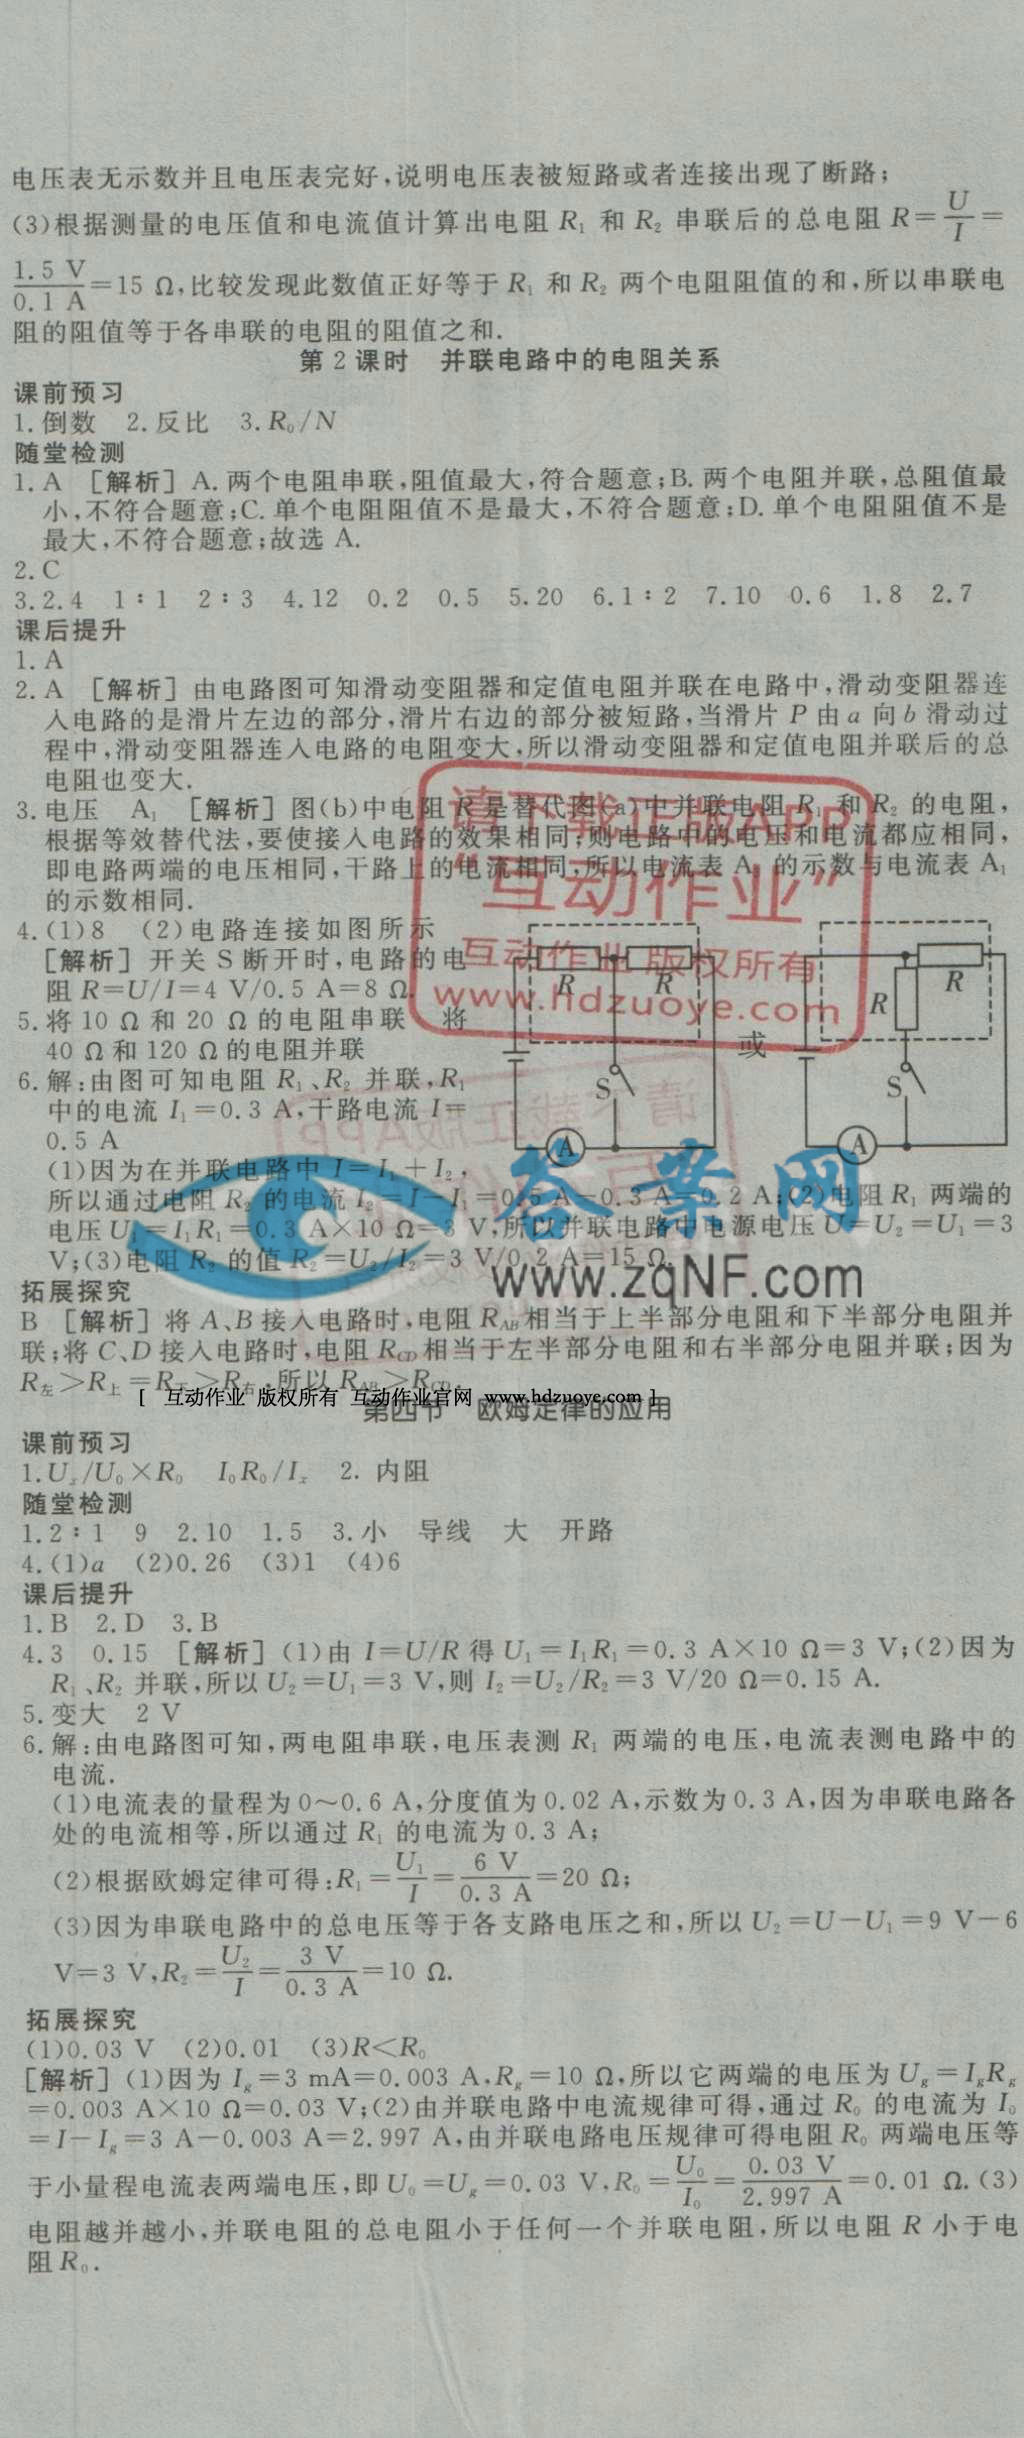 电压表无示数并且电压表完好,说明电压表被短路或者连接出现了断路;
(3)根据测量的电压值和电流值计算出电阻 R₁ 和 R₂ 串联后的总电阻 R=U/I=
1.5 V/0.1 A=15 Ω,比较发现此数值正好等于 R₁ 和 R₂ 两个电阻阻值的和,所以串联电
阻的阻值等于各串联的电阻的阻值之和.
第2课时 并联电路中的电阻关系
课前预习
1.倒数 2.反比 3.R₀/N
随堂检测
1.A [解析] A.两个电阻串联,阻值最大,符合题意;B.两个电阻并联,总阻值最
小,不符合题意;C.单个电阻阻值不是最大,不符合题意;D.单个电阻阻值不是
最大,不符合题意;故选 A.
2.C
3.2.4 1∶1 2∶3 4.12 0.2 0.5 5.20 6.1∶2 7.10 0.6 1.8 2.7
课后提升
1.A
2.A [解析] 由电路图可知滑动变阻器和定值电阻并联在电路中,滑动变阻器连
入电路的是滑片左边的部分,滑片右边的部分被短路,当滑片 P 由 a 向 b 滑动过
程中,滑动变阻器连入电路的电阻变大,所以滑动变阻器和定值电阻并联后的总
电阻也变大.
3.电压 A₁ [解析] 图(b)中电阻 R 是替代图(a)中并联电阻 R₁ 和 R₂ 的电阻,
根据等效替代法,要使接入电路的效果相同;则电路中的电压和电流都应相同,
即电路两端的电压相同,干路上的电流相同,所以电流表 A 的示数与电流表 A₁
的示数相同.
4.(1)8 (2)电路连接如图所示
[解析] 开关 S 断开时,电路的电
阻 R=U/I=4 V/0.5 A=8 Ω.
5.将 10 Ω 和 20 Ω 的电阻串联 将
40 Ω 和 120 Ω 的电阻并联
R R S A 或 R R S A
6.解:由图可知电阻 R₁、R₂ 并联,R₁
中的电流 I₁=0.3 A,干路电流 I=
0.5 A
(1)因为在并联电路中 I=I₁+I₂,
所以通过电阻 R₂ 的电流 I₂=I-I₁=0.5 A-0.3 A=0.2 A;(2)电阻 R₁ 两端的
电压 U₁=I₁R₁=0.3 A×10 Ω=3 V,所以并联电路中电源电压 U=U₂=U₁=3
V;(3)电阻 R₂ 的值 R₂=U₂/I₂=3 V/0.2 A=15 Ω.
请下载正版APP
"互动作业"
互动作业 版权所有
www.hdzuoye.com
答案网
www.zqNF.com
拓展探究
B [解析] 将 A、B 接入电路时,电阻 R_AB 相当于上半部分电阻和下半部分电阻并
联;将 C、D 接入电路时,电阻 R_CD 相当于左半部分电阻和右半部分电阻并联;因为
R左>R上=R下>R右;所以 R_AB>R_CD.
[ 互动作业 版权所有 互动作业官网 www.hdzuoye.com ]
第四节 欧姆定律的应用
课前预习
1.Uₓ/U₀×R₀ I₀R₀/Iₓ 2. 内阻
随堂检测
1.2∶1 9 2.10 1.5 3.小 导线 大 开路
4.(1)a (2)0.26 (3)1 (4)6
课后提升
1.B 2.D 3.B
4.3 0.15 [解析] (1)由 I=U/R 得 U₁=I₁R₁=0.3 A×10 Ω=3 V;(2)因为
R₁、R₂ 并联,所以 U₂=U₁=3 V,则 I₂=U₂/R₂=3 V/20 Ω=0.15 A.
5.变大 2 V
6.解:由电路图可知,两电阻串联,电压表测 R₁ 两端的电压,电流表测电路中的
电流.
(1)电流表的量程为 0~0.6 A,分度值为 0.02 A,示数为 0.3 A,因为串联电路各
处的电流相等,所以通过 R₁ 的电流为 0.3 A;
(2)根据欧姆定律可得:R₁=U₁/I=6 V/0.3 A=20 Ω;
(3)因为串联电路中的总电压等于各支路电压之和,所以 U₂=U-U₁=9 V-6
V=3 V,R₂=U₂/I=3 V/0.3 A=10 Ω.
拓展探究
(1)0.03 V (2)0.01 (3)R<R₀
[解析] (1)因为 I_g=3 mA=0.003 A,R_g=10 Ω,所以它两端的电压为 U_g=I_gR_g
=0.003 A×10 Ω=0.03 V;(2)由并联电路中电流规律可得,通过 R₀ 的电流为 I₀
=I-I_g=3 A-0.003 A=2.997 A,由并联电路电压规律可得电阻 R₀ 两端电压等
于小量程电流表两端电压,即 U₀=U_g=0.03 V,R₀=U₀/I₀=0.03 V/2.997 A=0.01 Ω.(3)
电阻越并越小,并联电阻的总电阻小于任何一个并联电阻,所以电阻 R 小于电
阻 R₀.